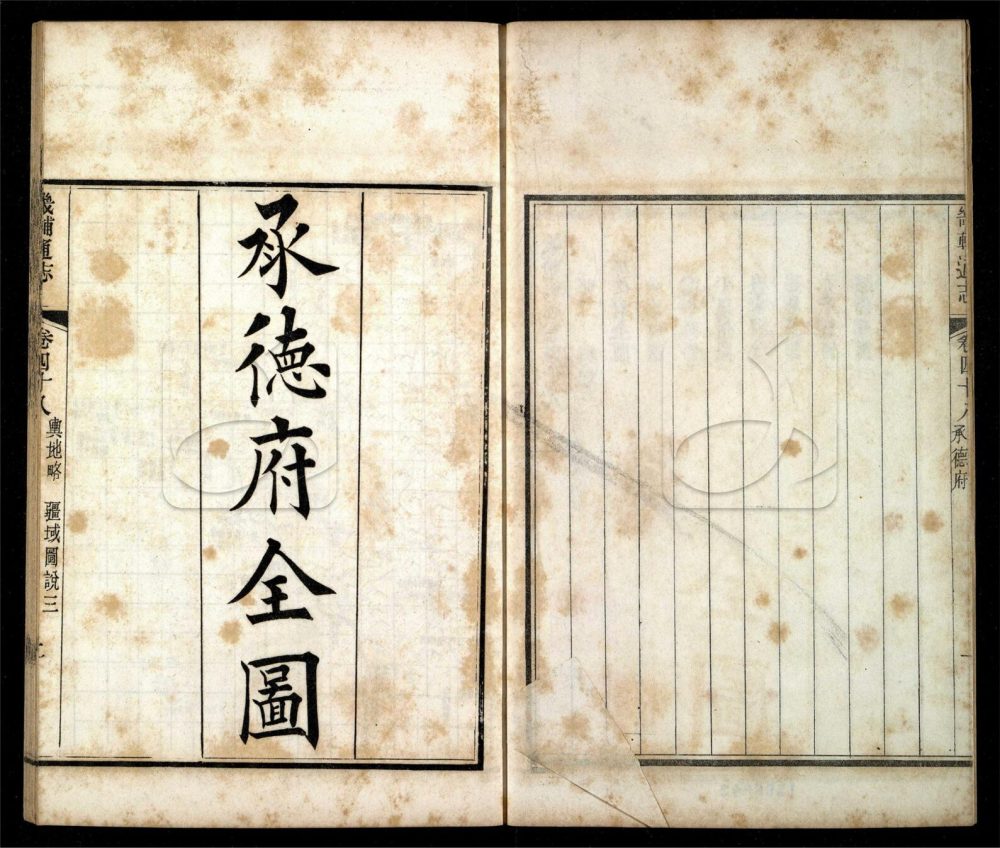 畿輔通志
卷四十八
承德府
承德府全圖
畿輔通志
卷四十八
輿地略
疆域圖說三